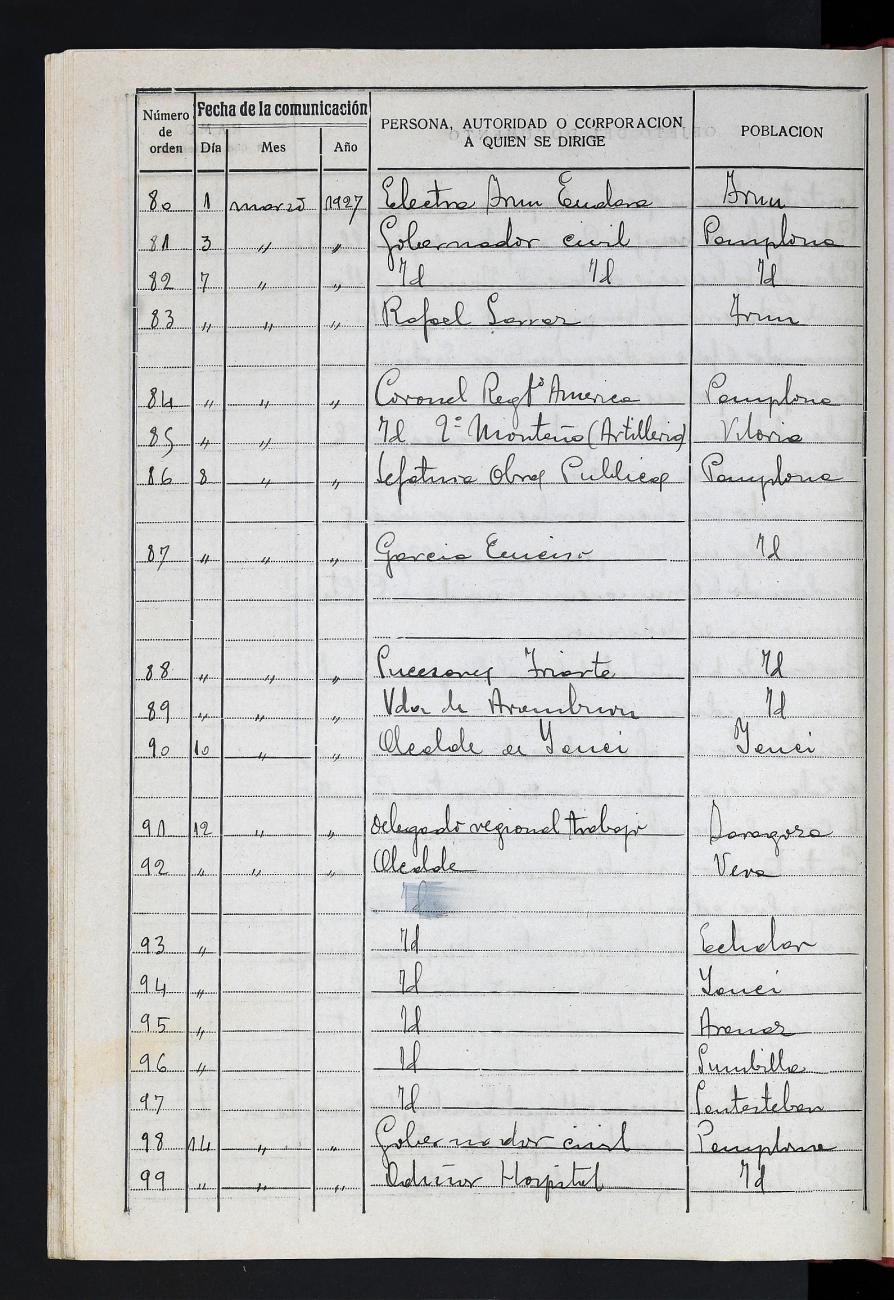 Número de orden | Fecha de la comunicación | PERSONA, AUTORIDAD O CORPORACION A QUIEN SE DIRIGE | POBLACION
Día | Mes | Año
80 1 marzo 1927 Electra Irun Endara Irun
81 3 " " Gobernador civil Pamplona
82 7 " " Id Id Id
83 " " " Rafael Irun
84 " " " Coronel Regtº America Pamplona
85 " " " Id 2º Montaña (Artilleria) Vitoria
86 8 " " Jefatura Obras Publicas Pamplona
87 " " " Garcia Enciso Id
88 " " " Sucesores Iriarte Id
89 " " " Vda de Aramburu Id
90 10 " " Alcalde de Yanci Yanci
91 12 " " Delegado regional trabajo Zaragoza
92 " " Alcalde Vera
Id
93 " Id Echalar
94 " Id Yanci
95 " Id Aranaz
96 " Id Sumbilla
97 Id Santesteban
98 14 " " Gobernador civil Pamplona
99 " " " Hospital Id